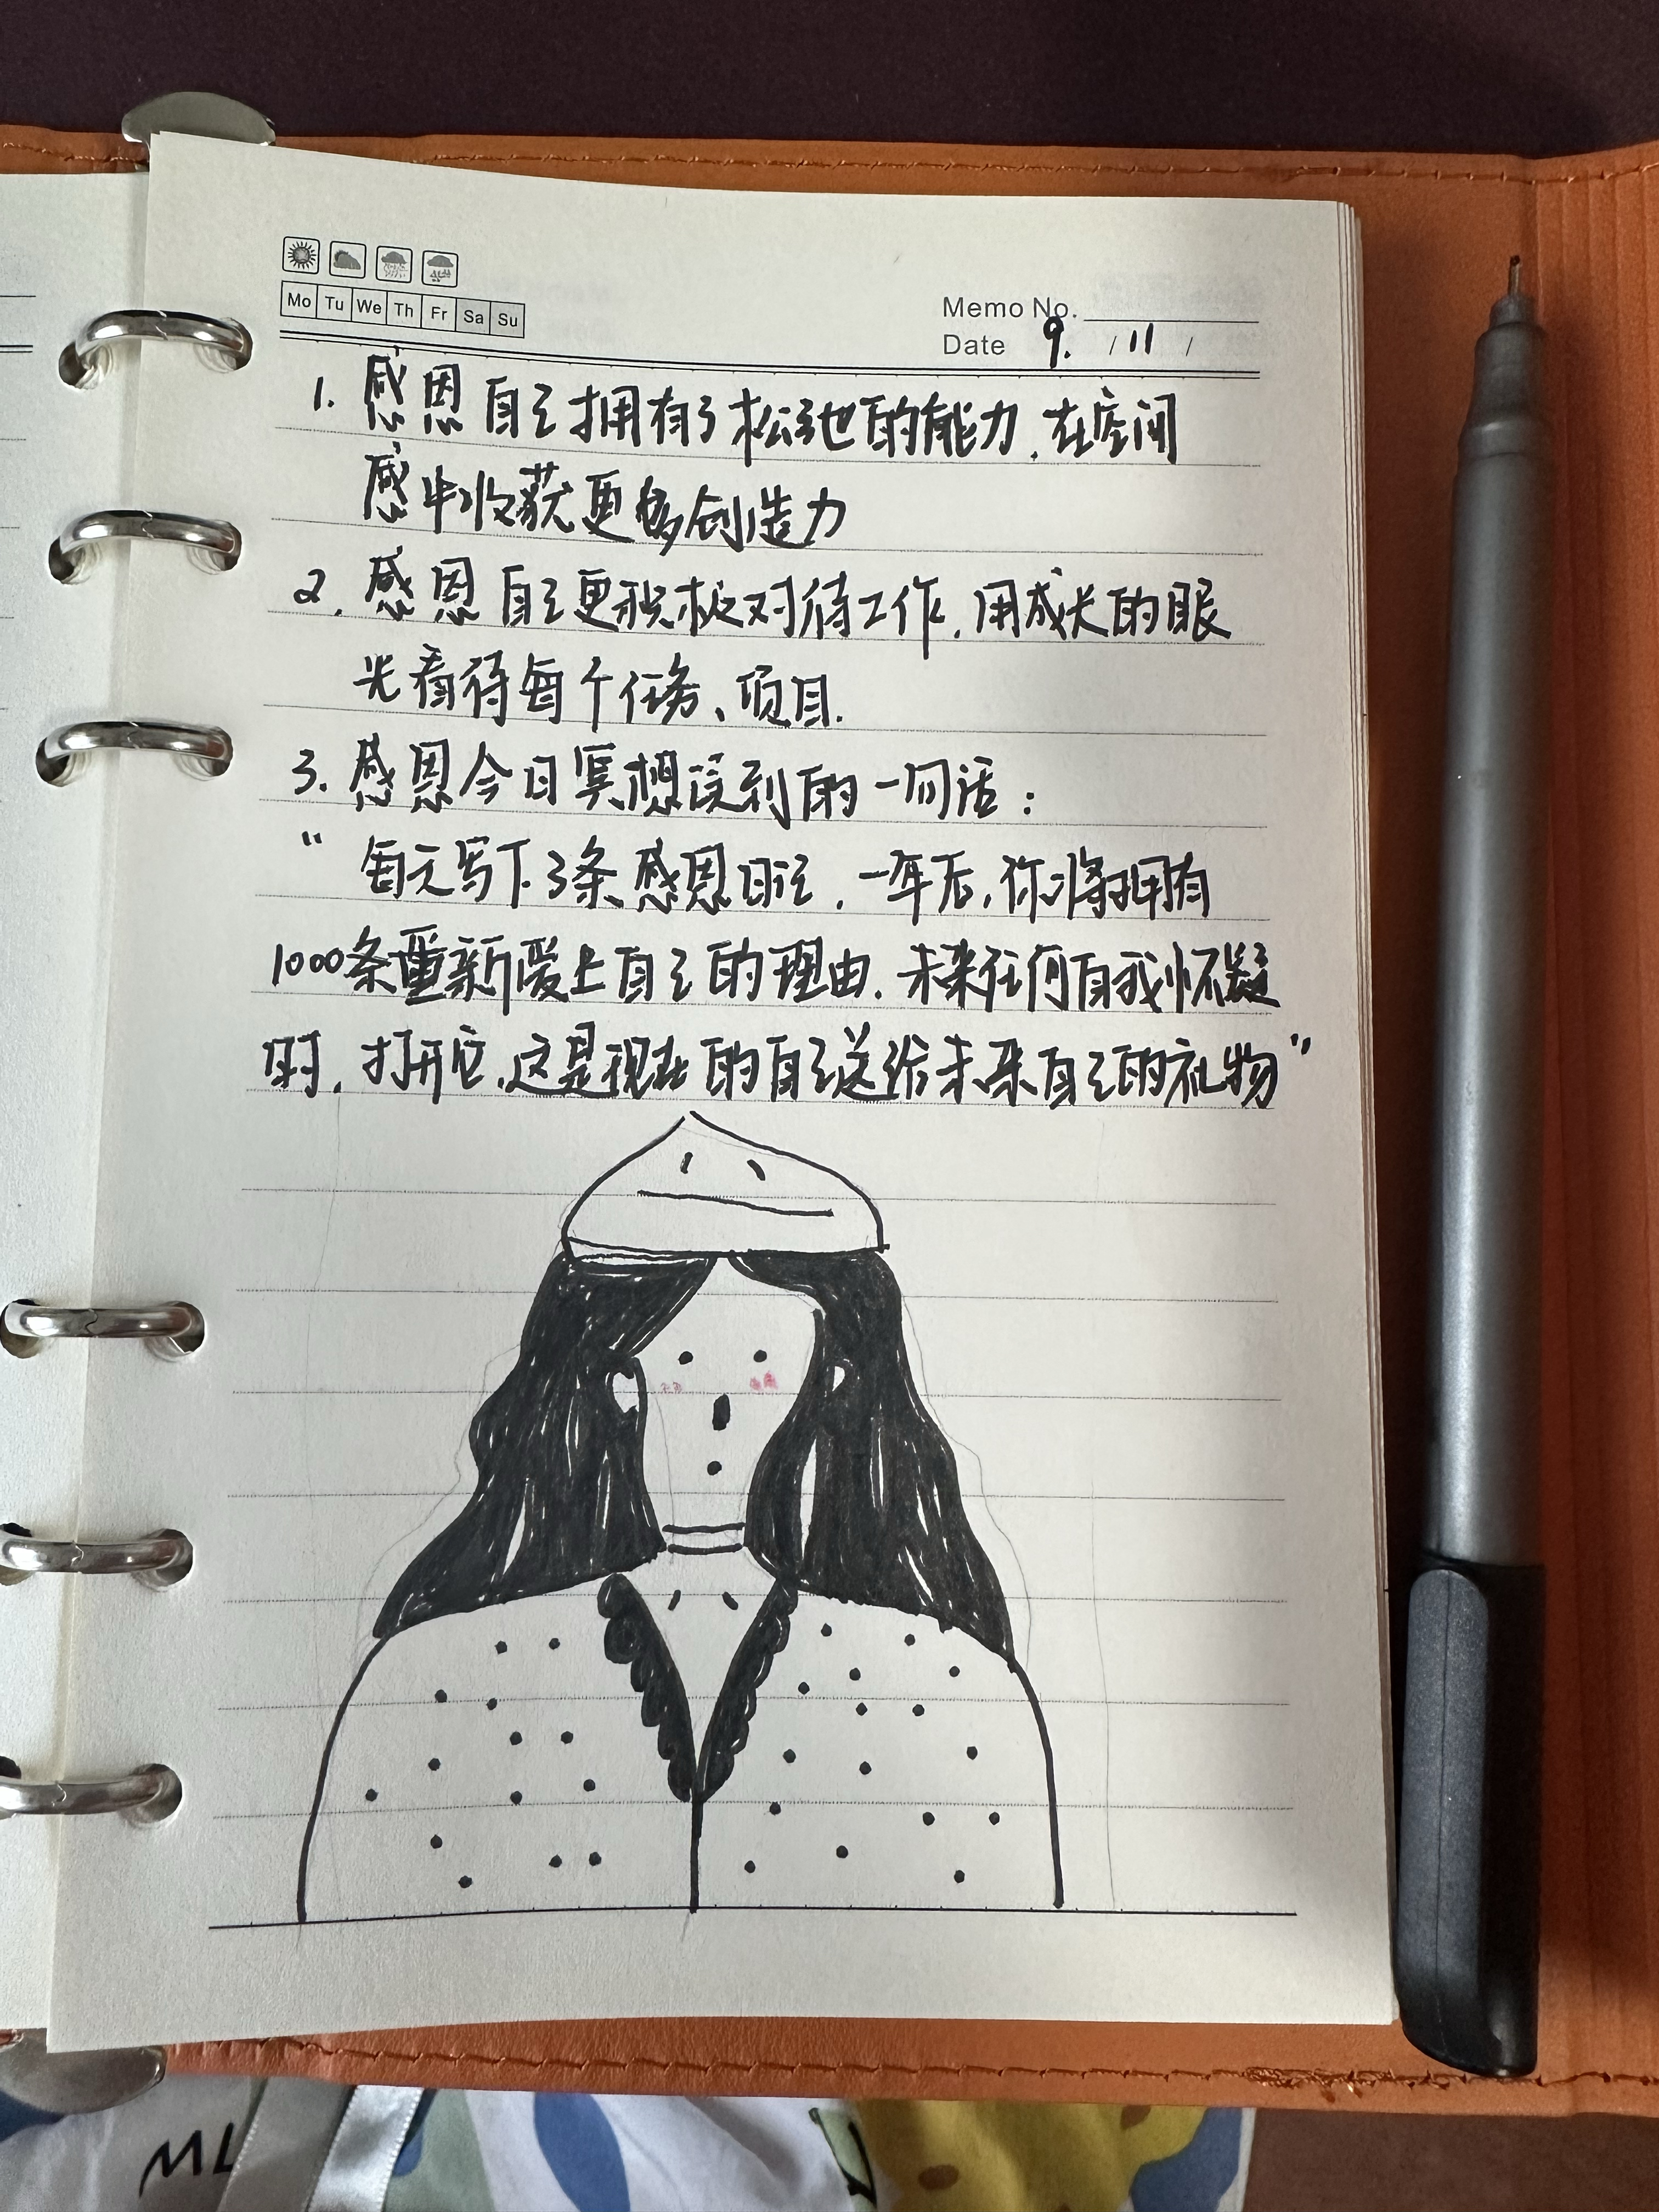 Mo Tu We Th Fr Sa Su
Memo No.
Date 9. / 11 /
1. 感恩自己拥有了松弛的能力.在空间
感中收获更多创造力
2. 感恩自己更积极对待工作.用成长的眼
光看待每个任务、项目.
3. 感恩今日冥想读到的一句话：
“每天写下3条感恩日记，一年后，你将拥有
1000条重新爱上自己的理由.未来任何自我怀疑
时，打开它.这是现在的自己送给未来自己的礼物”
ML